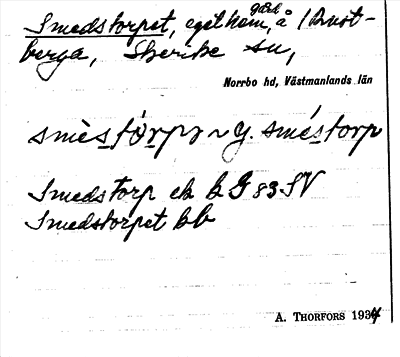 Smedstorpet, eget hem, gård å (Rust-
berga, Skerike sn,
Norrbo hd, Västmanlands län
smès tórpɘ ~ y. smés torp
Smedstorp ek b G 83 SV
Smedstorpet bb
A. THORFORS 1934